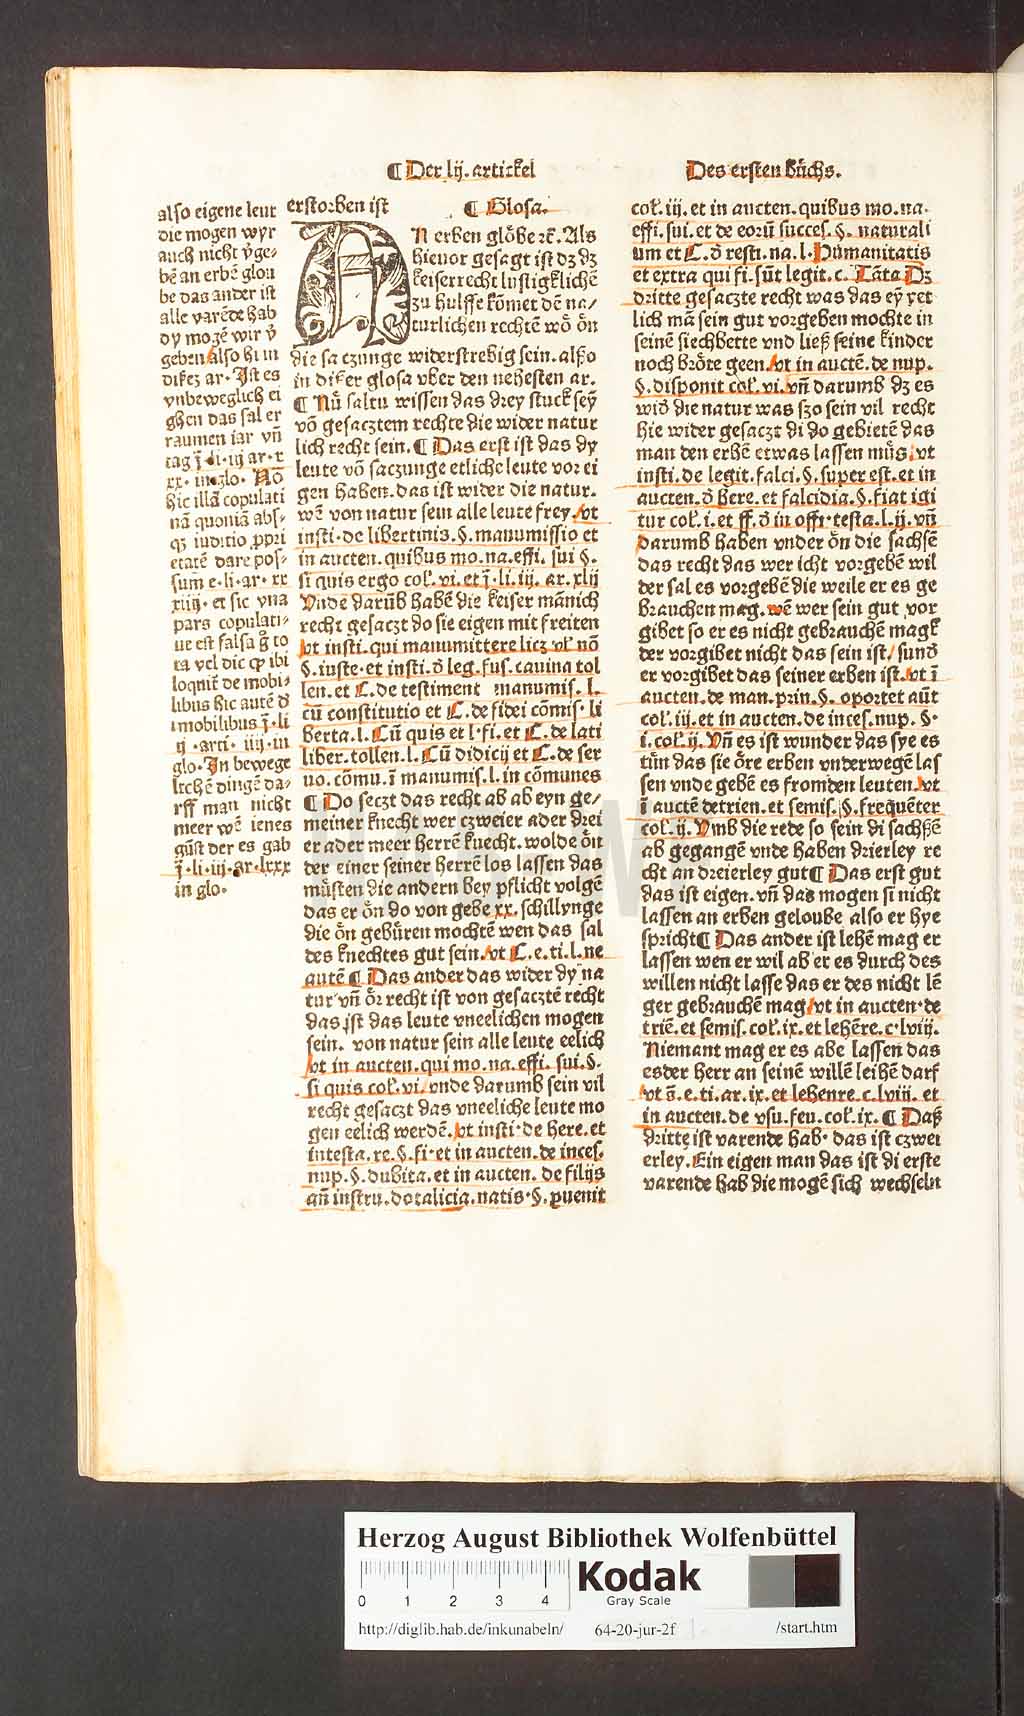 ¶ Der lij. artickel
Des ersten bůchs.
also eigene leut
die mogen wyr
auch nicht v̄ge-
bē an erbē glou
be das ander ist
alle varēde hab
dy mogē wir v̄
geben also hi in
dißez ar. Ist es
vnbeweglich ei
ghen das sal er
raumen iar vn̄
tag j̄. li. iij ar. x
xx. in glo. No
hic illā copulati
nā quoniā abs-
qz iuditio ppri
etatē dare pos-
sum̄ e. li. ar. xx
xiiij. et sic vna
pars copulati-
ue est falsa g̊ to
ta vel dic qp ibi
loqnit̄ de mobi-
libus hic autē d̄
imobilibus j̄. li
ij. arti. iiij. in
glo. In bewege
lichē dingē da-
rff man nicht
meer wē ienes
gūst der es gab
j̄. li. iij. ar. lxxx
in glo.
erstorben ist
¶ Glosa.
AN erben glǒbe rc̄. Als
hieuor gesagt ist dz dz
keiserrecht lustigklichē
zu hulffe kōmet dē na/
turlichen rechtē wǒ ǒn
die sa czunge widerstrebig sein. alßo
in dißer glosa vber den nehesten ar.
¶ Nů saltu wissen das drey stuck sey
vō gesacztem rechte die wider natur
lich recht sein. ¶ Das erst ist das dy
leute vō saczunge etliche leute vor ei
gen haben. das ist wider die natur.
wē von natur sein alle leute frey. vt
insti. de libertinis. §. manumissio et
in aucten. quibus mo. na. effi. sui §.
si quis ergo col. vi. et j̄. li. iij. ar. xlij
Vnde darūb habē die keiser mānich
recht gesaczt do sie eigen mit freiten
vt insti. qui manumittere licz vl nō
§. iuste. et insti. d̄ leg. fus. canina tol
len. et C. de testiment manumis. l.
cū constitutio et C. de fidei cōmis. li
berta. l. Cū quis et l. fi. et C. de lati
liber. tollen. l. Cū didicij et C. de ser
uo. cōmu. ī manumis. l. in cōmunes
¶ Do seczt das recht ab ab eyn ge/
meiner knecht wer czweier ader drei
er ader meer herrē knecht. wolde ǒn
der einer seiner herrē los lassen das
můsten die andern bey pflicht volgē
das er ǒn do von gebe xx. schillynge
die ǒn gebůren mochtē wen das sal
des knechtes gut sein. vt C. e. ti. l. ne
autē ¶ Das ander das wider dy na
tur vn̄ ǒr recht ist von gesacztē recht
das ist das leute vneelichen mogen
sein. von natur sein alle leute eelich
vt in aucten. qui mo. na. effi. sui. §.
si quis col. vi. vnde darumb sein vil
recht gesaczt das vneeliche leute mo
gen eelich werdē. vt insti. de here. et
intesta. re. §. fi. et in aucten. de inces.
nup. §. dubita. et in aucten. de filijs
an̄ instru. dotalicia. natis. §. puenit
col. iij. et in aucten. quibus mo. na.
effi. sui. et de eorū succes. §. naturali
um et C. d̄ resti. na. l. Humanitatis
et extra qui fi. sūt legit. c. Tāta Dz
dritte gesaczte recht was das ey yet
lich mā sein gut vorgeben mochte in
seinē siechbette vnd ließ seine kinder
noch brǒte geen. vt in auctē. de nup.
§. disponit col. vi. vn̄ darumb dz es
wid̄ die natur was szo sein vil recht
hie wider gesaczt di do gebietē das
man den erbē etwas lassen můs. vt
insti. de legit. falci. §. super est. et in
aucten. d̄ here. et falcidia. §. fiat igi
tur col. i. et ff. d̄ in offi. testa. l. ij. vn̄
darumb haben vnder ǒn die sachsē
das recht das wer icht vorgebē wil
der sal es vorgebē die weile er es ge
brauchen mag. wē wer sein gut vor
gibet so er es nicht gebrauchē magk
der vorgibet nicht das sein ist/ sund̄
er vorgibet das seiner erben ist. vt ī
aucten. de man. prin. §. oportet aūt
col. iij. et in aucten. de inces. nup. §.
i. col. ij. Vn̄ es ist wunder das sye es
tůn das sie ǒre erben vnderwegē las
sen vnde gebē es fromden leuten. vt
ī auctē de trien. et semis. §. frequēter
col. ij. Vmb die rede so sein di sachßē
ab gegangē vnde haben drierley re
cht an dreierley gut ¶ Das erst gut
das ist eigen. vn̄ das mogen si nicht
lassen an erben geloube also er hye
spricht ¶ Das ander ist lehē mag er
lassen wen er wil ab er es durch des
willen nicht lasse das er des nicht lē
ger gebrauchē mag/ vt in aucten. de
triē. et semis. col. ix. et lehēre. c. lviij.
Niemant mag er es abe lassen das
es der herr an seinē willē leihē darf
vt s̄. e. ti. ar. ix. et lehenre. c. lviii. et
in aucten. de vsu. feu. col. ix. ¶ Daß
dritte ist varende hab. das ist czwei
erley. Ein eigen man das ist di erste
varende hab die mogē sich wechseln
Herzog August Bibliothek Wolfenbüttel
0 1 2 3 4
Kodak
Gray Scale
http://diglib.hab.de/inkunabeln/ 64-20-jur-2f /start.htm